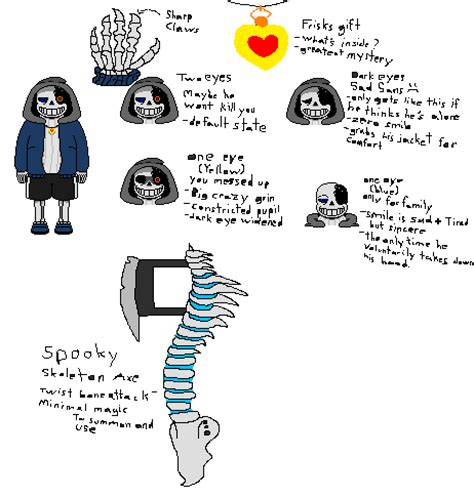 Sharp
Claws
Frisks gift
-what's inside?
-greatest mystery
Two eyes
Maybe he
want kill you
-default state
Dark eyes
Sad Sans
-only gets like this if
he thinks he's alone
-zero smile
-grabs his jacket for
comfort
one eye
(Yellow)
you messed up
-Big crazy grin
-Constricted pupil
-dark eye widened
one eye
(blue)
only for family
-smile is sad + Tired
but sincere
-the only time he
voluntarily takes down
his hood.
Spooky
Skeleton Axe
Twist bone attack
Minimal magic
To summon and
use